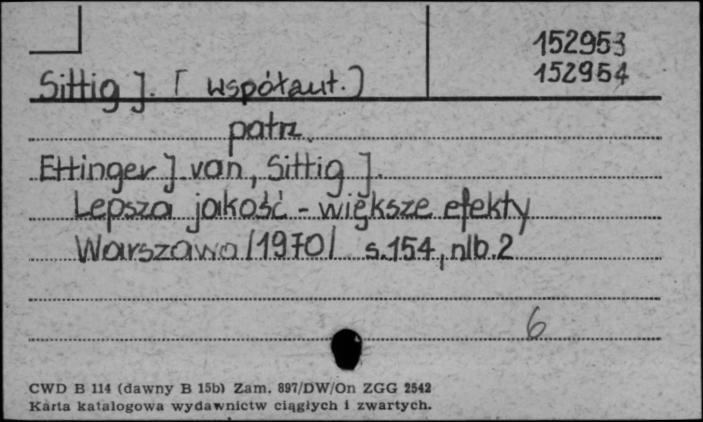 152953
152954
Sittig J. [współaut.]
patrz
Ettinger J. van, Sittig J.
Lepsza jakość - większe efekty
Warszawa /1970/ s.154, nlb.2
6
CWD B 114 (dawny B 15b) Zam. 897/DW/On ZGG 2542
Karta katalogowa wydawnictw ciągłych i zwartych.